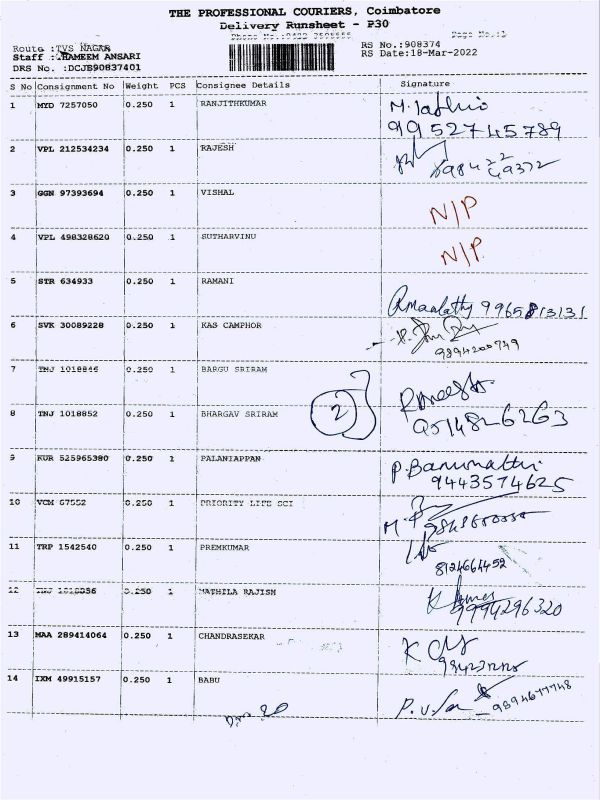 THE PROFESSIONAL COURIERS, Coimbatore
Delivery Runsheet - P30
Page No.:1
Route :TVS NAGAR
Staff :HAMEEM ANSARI
DRS No. :DCJE90837401
RS No.:908374
RS Date:18-Mar-2022
S No Consignment No Weight PCS Consignee Details Signature
1 MYD 7257050 0.250 1 RANJITHKUMAR
9952745789
2 VPL 212534234 0.250 1 RAJESH
3 GGN 97393694 0.250 1 VISHAL N/P
4 VPL 498328620 0.250 1 SUTHARVINU N/P
5 STR 634933 0.250 1 RAMANI
6 SVK 30089228 0.250 1 KAS CAMPHOR
9894200749
7 TNJ 1018846 0.250 1 BARGU SRIRAM
2
8 TNJ 1018852 0.250 1 BHARGAV SRIRAM
9514826263
9 KUR 525965380 0.250 1 PALANIAPPAN P. Banumathi
9443574625
10 VCM 67552 0.250 1 PRIORITY LIFE SCI
11 TRP 1542540 0.250 1 PREMKUMAR
8124664452
12 0.250 1 MATHILA RAJISH
9994296320
13 MAA 289414064 0.250 1 CHANDRASEKAR
14 IXM 49915157 0.250 1 BABU
9894677748